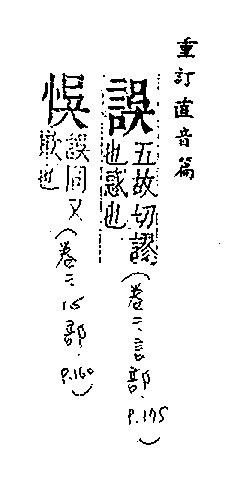 重訂直音篇
誤 五故切謬也惑也（卷二、言部．P.175）
悞 誤同又欺也（卷二、心部．P.160）